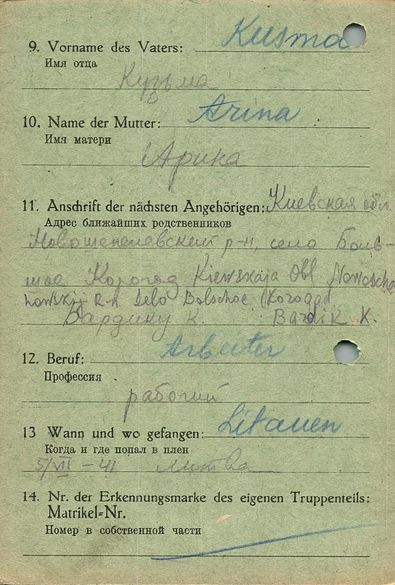 9. Vorname des Vaters: Kusma
Имя отца
Кузьма
10. Name der Mutter: Arina
Имя матери
Арина
11. Anschrift der nächsten Angehörigen: Киевская обл.
Адрес ближайших родственников
р-н, село Боль-
Корогяд Kiewskaja Obl Nowoscho
R-n Selo Bolschoe Korogod
Вардику К. Bardik K.
12. Beruf: Arbeiter
Профессия
рабочий
13 Wann und wo gefangen: Litauen
Когда и где попал в плен
5/VII – 41 Литва
14. Nr. der Erkennungsmarke des eigenen Truppenteils:
Matrikel-Nr.
Номер в собственной части